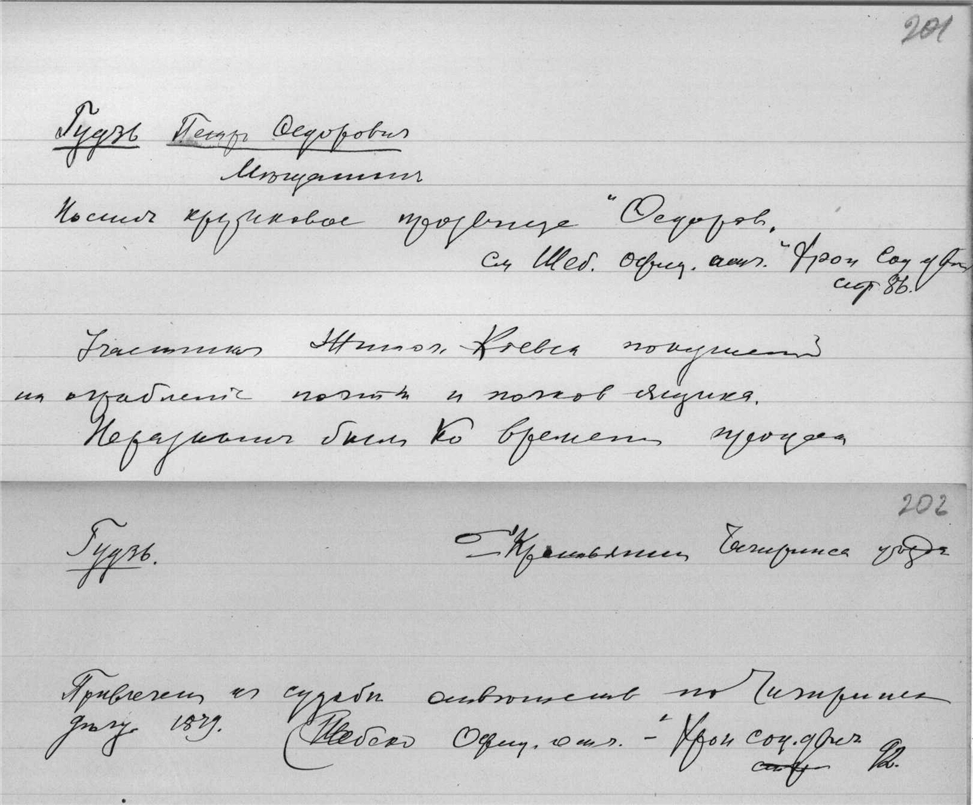 201
Гудзь Петръ Федорович
Мѣщанинъ
Носилъ кружковое прозвище "Федоров"
см Шеб. Офиц. ист. "Хрон соц движ
стр 86.
Участник Житом. Киевск покушений
на ограбление почты и полков ящика.
Неразыскан был ко времени процесса
202
Гудзь. Крестьянин Чигиринск уезда
Привлечен к судебн ответственн по Чигиринск
делу 1879. (Шебеко Офиц. ист. – "Хрон соц. движ
стр 92.